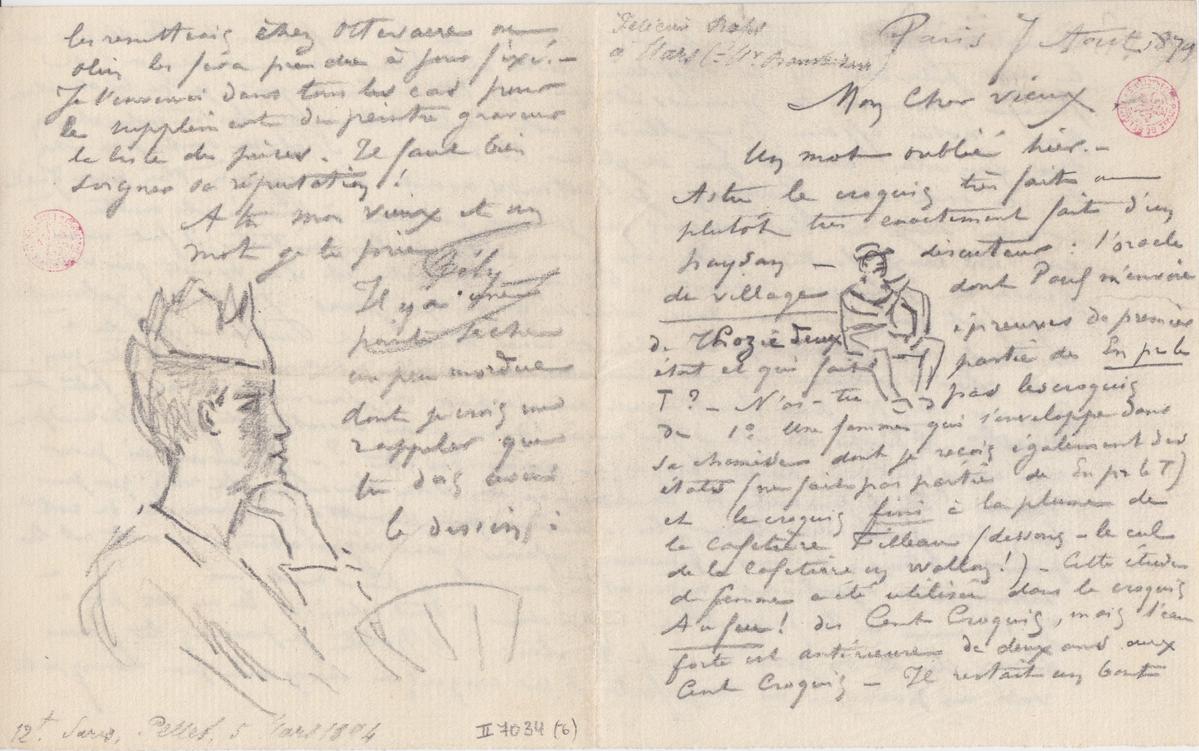 Paris 7 Août 1879
Mon cher vieux
Un mot oublié hier. -
As tu le croquis très fait ou
plutôt très exactement fait d'un
paysan — discuteur. l'oracle
de village dont Paul m'envoie
de Thozée deux épreuves de premier
état et qui fait partie des En pr le
T ? - N'as-tu pas les croquis
de 1º Une femme qui s'enveloppe dans
sa chemise dont je reçois également des
états (ne fait pas partie de En pr le T)
et le croquis fini à la plume de
la cafetière Filleau (dessous - le cul
de la cafetière en Wallon !) - Cette étude
de femme a été utilisée dans le croquis
Au feu ! des Cent Croquis, mais l'eau
forte est antérieure de deux ans aux
Cent Croquis - Il restait un bout
les remettrais chez ou
les fera prendre à jour fixé. -
Je t'enverrai dans tous les cas pour
le supplément du peintre graveur
la liste des pièces. Il faut bien
soigner sa réputation !
A toi mon vieux et un
mot je te prie
Fély
Il y a une
pointe sèche
un peu mordue
dont je crois me
rappeler que
tu dois avoir
le dessin :
12t. Pellet, 5 Mars 1894
II 7034 (6)